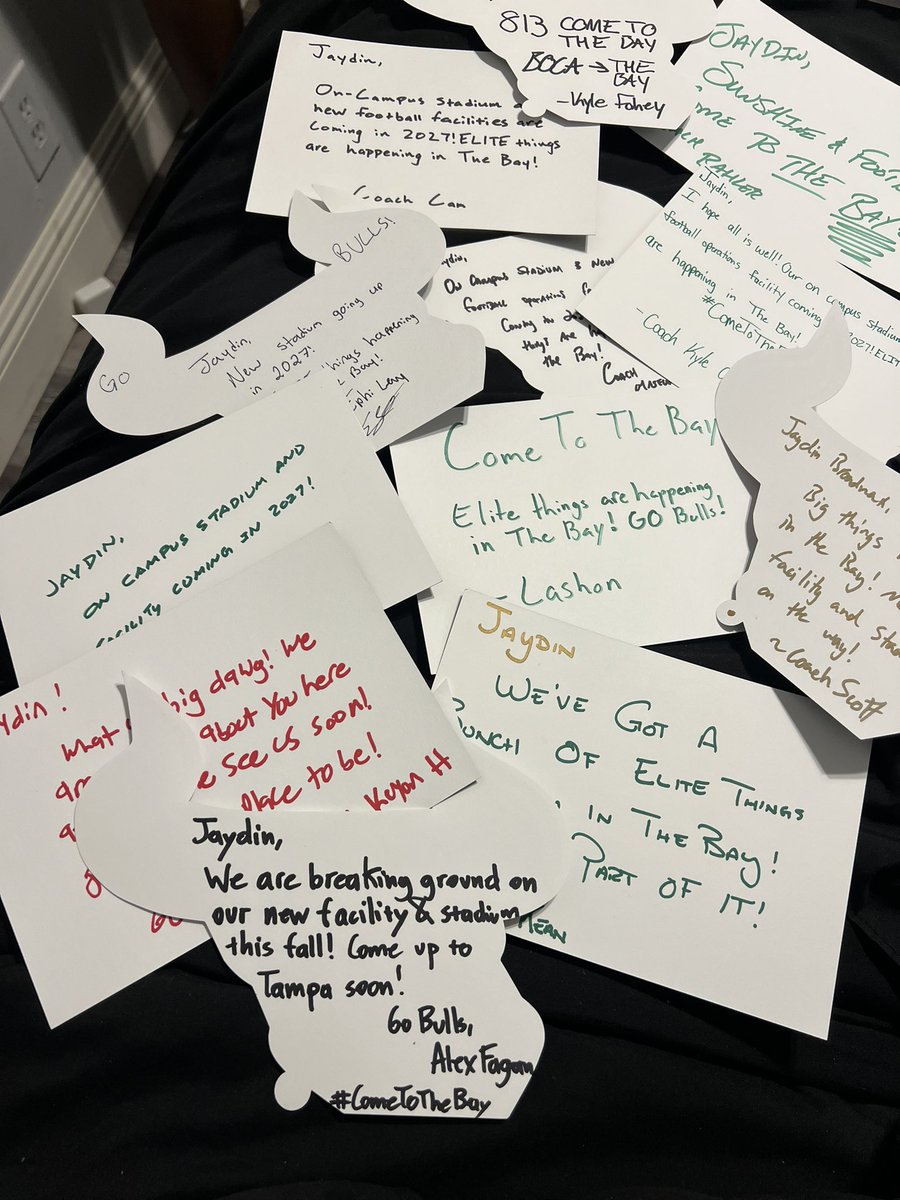 813 COME TO
THE DAY
BOCA → THE
BAY
-Kyle Fahey
Jaydin,
On-Campus Stadium
new football facilities are
Coming in 2027! ELITE things
are happening in The Bay!
Coach Cam
JAYDIN,
SUNSHINE &
TO THE BAY
Jaydin,
I hope all is well! Our on campus stadium
football operations facility coming 2027! ELIT
are happening in The Bay!
#ComeToTheB
-Coach Kyle
On Campus Stadium & New
Football operations
Coming in
the Bay!
Coach
GO
BULLS!
Jaydin,
New stadium going up
in 2027!
things happening
Bay!
Levy
Come To The Bay
Elite things are happening
in The Bay! GO Bulls!
- Lashon
Jaydin
Big things
in the Bay!
facility and
on the way!
~Coach Scott
JAYDIN,
ON CAMPUS STADIUM AND
FACILITY COMING IN 2027!
JAYDIN
WE'VE GOT A
BUNCH OF ELITE THINGS
IN THE BAY!
PART OF IT!
What big dawg! We
about You here
see us soon!
place to be!
Jaydin,
We are breaking ground on
our new facility & stadium
this fall! Come up to
Tampa soon!
Go Bulls,
Alex Fagan
#ComeToTheBay